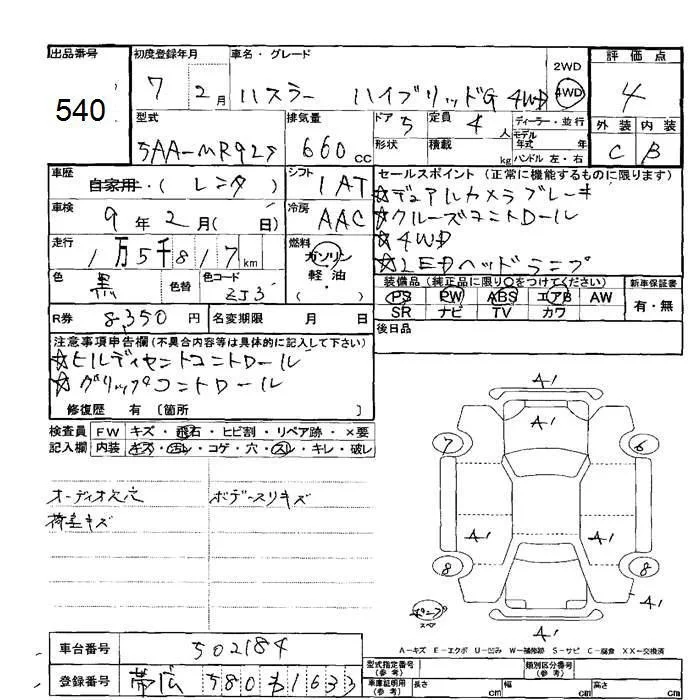 出品番号 初度登録年月 車名・グレード 2WD 評価点
540 7 2月 ハスラー ハイブリッドG 4WD 4WD 4
型式 排気量 ドア 5 定員 4人 ディーラー・並行 外装 内装
5AA-MR92S 660cc 形状 積載 kg モデル年式 年 ハンドル 左・右 C B
車歴 自家用・(レンタ) シフト 1AT セールスポイント (正常に機能するものに限ります)
車検 9年2月(日) 冷房 AAC ☆デュアルカメラブレーキ
☆クルーズコントロール
走行 1万5千817km 燃料 ガソリン 軽油 ・( ) ☆4WD
☆LEDヘッドランプ
色 黒 色替 色コード ZJ3 装備品 (純正品に限り○をつけてください) 新車保証書
PS PW ABS エアB AW 有・無
R券 8,350円 名変期限 月 日 SR ナビ TV カワ
注意事項申告欄(不具合内容等は具体的に記入して下さい) 後日品
☆ヒルディセントコントロール
☆グリップコントロール
修復歴 有 〔箇所 〕
検査員 FW キズ・飛石・ヒビ割・リペア跡・×要
記入欄 内装 キズ・汚レ・コゲ・穴・スレ・キレ・破レ
オーディオ欠穴 ボデースリキズ
荷室キズ
A1
A1
7 6
A1 A1
8 8
A1
A1
A-キズ E-エクボ U-凹み W-補修跡 S-サビ C-腐食 XX-交換済
車台番号 502184 型式指定番号(参考) 類別区分番号(参考)
登録番号 帯広 580 わ1633 車庫証明用(参考) 長さ cm 幅 cm 高さ cm